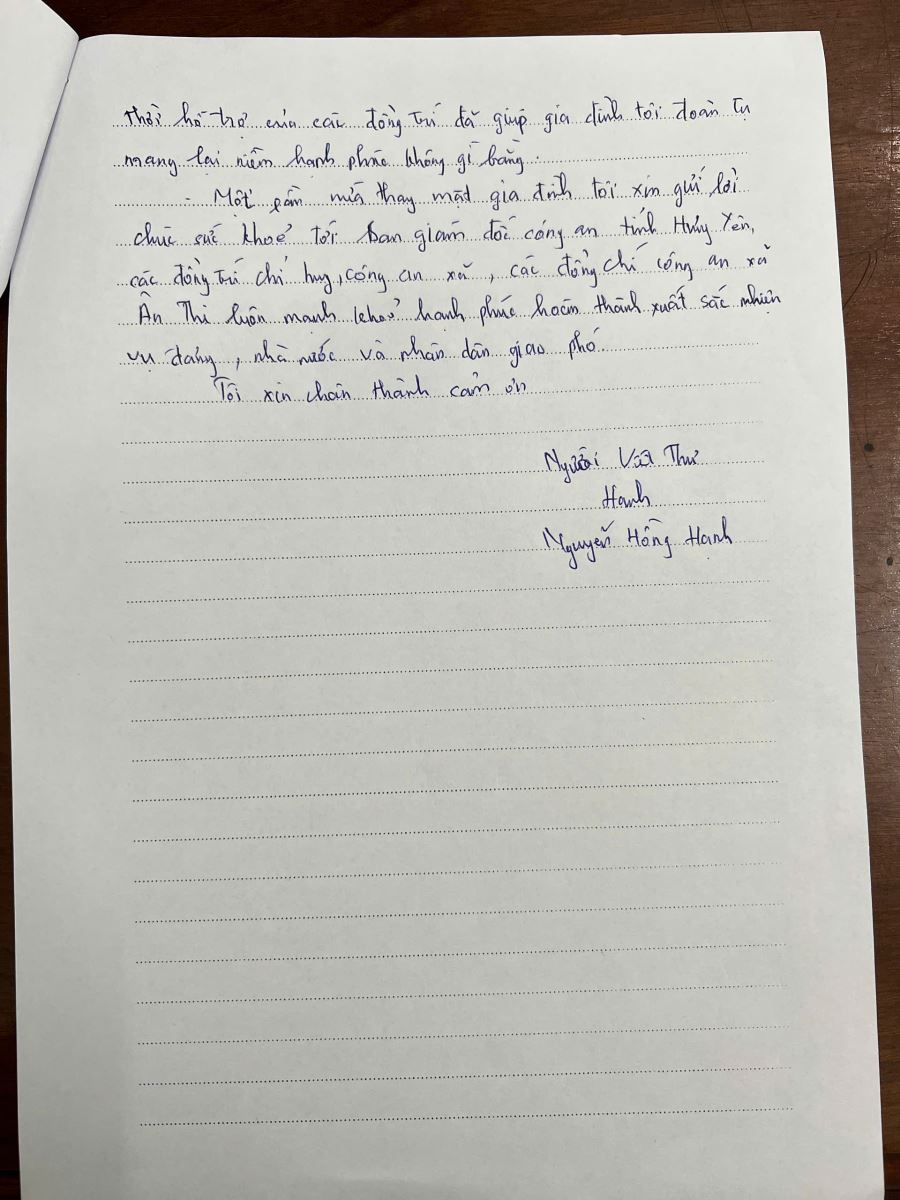 thời hỗ trợ của các đồng trí đã giúp gia đình tôi đoàn tụ
mang lại niềm hạnh phúc không gì bằng.
- Một lần nữa thay mặt gia đình tôi xin gửi lời
chúc sức khoẻ tới Ban giám đốc công an tỉnh Hưng Yên,
các đồng trí chỉ huy, công an xã, các đồng chí công an xã
Ân Thi luôn mạnh khoẻ hạnh phúc hoàn thành xuất sắc nhiên
vụ đảng, nhà nước và nhân dân giao phó.
Tôi xin chân thành cảm ơn
Người Viết Thư
Hạnh
Nguyễn Hồng Hạnh